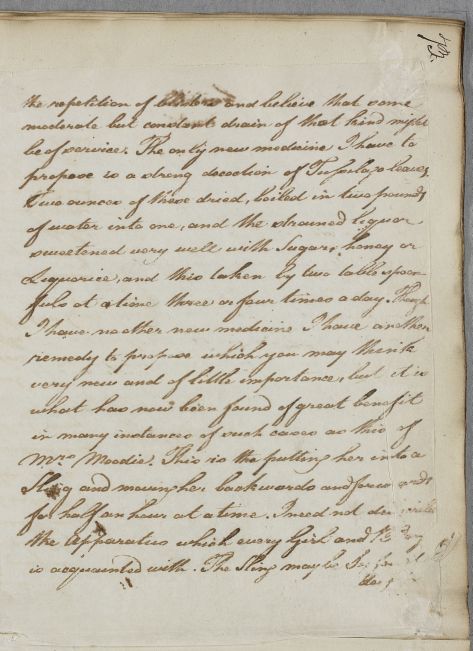 the repetition of blisters and believe that some
moderate but constant drain of that kind might
be of service. The only new medicine I have to
propose is a strong decoction of Tussilago leaves
two ounces of these dried, boiled in two pounds
of water into one, and the strained liquor
sweetened very well with Sugar, honey or
Liquorice, and this taken by two table spoon
fuls at a time three or four times a day. Though
I have no other new medicine I have another
remedy to propose which you may think
very new and of little importance, but it is
what has now been found of great benefit
in many instances of such cases as this of
Mrs Moodie. This is the putting her into a
Sling and moving her backwards and forwards
for half an hour at a time. I need not describe
the Apparatus which every Girl and
is acquainted with. The Sling may be